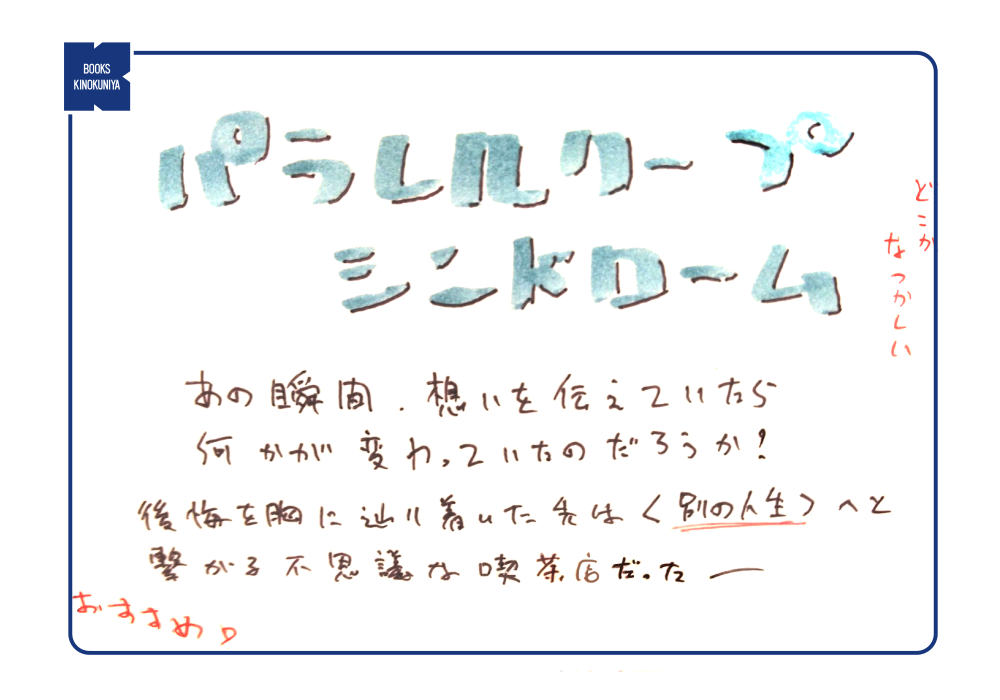 BOOKS
KINOKUNIYA
パラレルワープ
シンドローム
どこか
なつかしい
あの瞬間、想いを伝えていたら
何かが変わっていたのだろうか?
後悔を胸に辿り着いた先は〈別の人生〉へと
繋がる不思議な喫茶店だった―
おすすめ♡